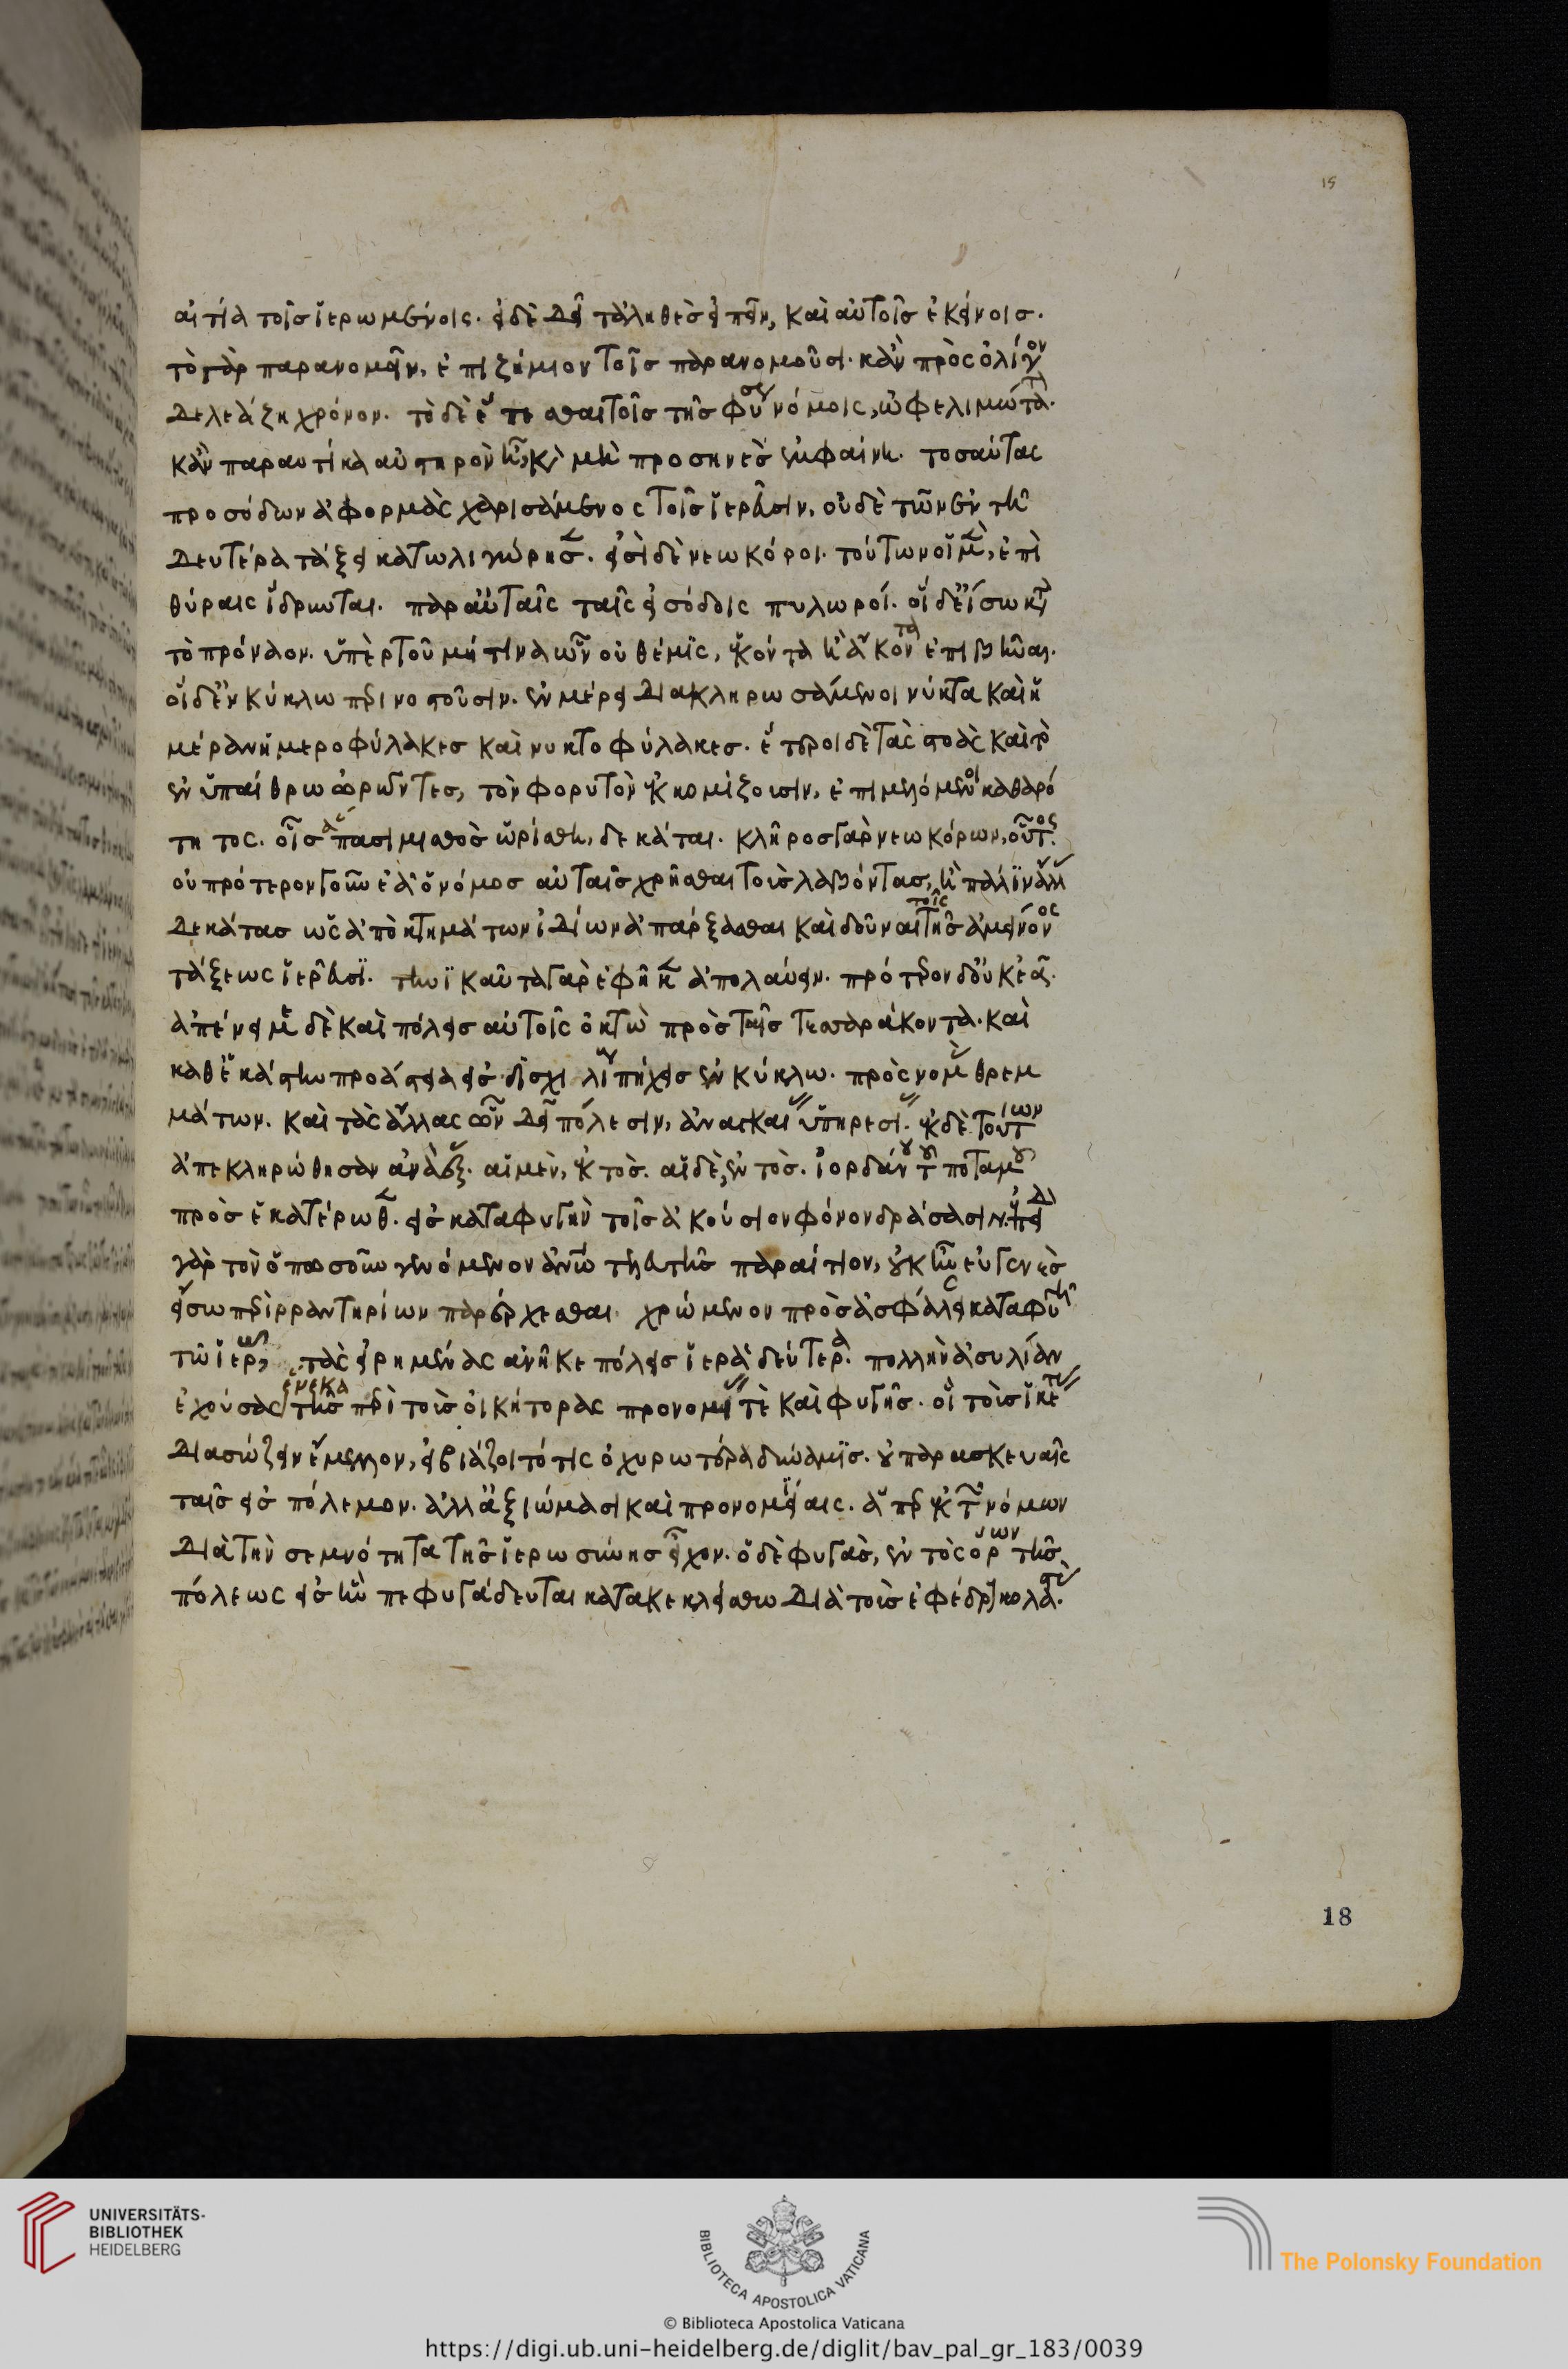 15
αἰτία τοῖς ἱερωμένοις. εἰ δὲ δεῖ τἀληθὲς εἰπεῖν, καὶ αὐτοῖς ἐκείνοις.
τὸ γὰρ παρανομεῖν, ἐπιζήμιον τοῖς παρανομοῦσι. κἂν πρὸς ὀλίγον
δελεάζη χρόνον. τὸ δὲ ἕπεσθαι τοῖς τῆς φύσεως νόμοις, ὠφελιμώτατον.
κἂν παραυτίκα αὐστηρὸν ἦ, καὶ μὴ προσηνὲς ἐμφαίνη. τοσαύτας
προσόδων ἀφορμὰς χαρισάμενος τοῖς ἱερεῦσιν, οὐδὲ τῶν ἐν τῆ
δευτέρα τάξει κατωλιγώρησεν. εἰσὶ δὲ νεωκόροι. τούτων οἱ μὲν, ἐπὶ
θύραις ἵδρυνται. παρ' αὐταῖς ταῖς εἰσόδοις πυλωροί. οἱ δὲ εἴσω κατὰ
τὸ πρόναον. ὑπὲρ τοῦ μή τινα ὧν οὐ θέμις, ἑκόντα ἢ ἄκοντα ἐπιβῆναι.
οἱ δὲ ἐν κύκλω περινοστοῦσιν. ἐν μέρει διακληρωσάμενοι νύκτα καὶ ἡ
μέραν ἡμεροφύλακες καὶ νυκτοφύλακες. ἕτεροι δὲ τὰς στοὰς καὶ τὰ
ἐν ὑπαίθρω κοροῦντες, τὸν φορυτὸν ἐκκομίζουσιν, ἐπιμελόμενοι καθαρό
τητος. οἷς ἅπασι μισθὸς ὡρίσθη, δεκάται. κλῆρος γὰρ νεωκόρων, οὗτος.
οὐ πρότερον γοῦν ἐᾶ ὁ νόμος αὐταῖς χρῆσθαι τοὺς λαβόντας, ἢ πάλιν ἄλλας
δεκάτας ὡς ἀπὸ κτημάτων ἰδίων ἀπάρξασθαι καὶ δοῦναι τοῖς τῆς ἀμείνονος
τάξεως ἱερεῦσι. τηνικαῦτα γὰρ ἐφῆκεν ἀπολαύειν. πρότερον δ' οὐκ ἐᾶ.
ἀπένειμε δὲ καὶ πόλεις αὐτοῖς ὀκτὼ πρὸς ταῖς τεσσαράκοντα. καὶ
καθ' ἑκάστην προάστεια εἰς δισχιλίους πήχεις ἐν κύκλω. πρὸς νομὴν θρεμ
μάτων. καὶ τὰς ἄλλας ὧν δεῖ πόλεσιν, ἀναγκαίας ὑπηρεσίας. ἐκ δὲ τούτων
ἀπεκληρώθησαν ἀνὰ ἕξ. αἱ μὲν, ἐκτὸς. αἱ δὲ, ἐντὸς. ἰορδάνου τοῦ ποταμοῦ
πρὸς ἑκατέρωθεν. εἰς καταφυγὴν τοῖς ἀκούσιον φόνον δράσασιν. ἐπειδὴ
γὰρ τὸν ὁπωσοῦν γενόμενον ἀνθρώπω τελευτῆς παραίτιον, οὐκ ἦν εὐαγὲς
εἴσω περιρραντηρίων παρέρχεσθαι. χρώμενον πρὸς ἀσφάλειαν καταφυγῆ
τῶ ἱερῶ, τὰς εἰρημένας ἀνῆκε πόλεις ἱερὰ δεύτερα. πολλὴν ἀσυλίαν
ἐχούσας ἕνεκα τῆς περὶ τοὺς οἰκήτορας προνομίας τὲ καὶ φυγῆς. οἳ τοὺς ἱκέτας
διασώζειν ἔμελλον, εἰ βιάζοιτό τις ὀχυρωτέρα δυνάμεις. οὐ παρασκευαῖς
ταῖς εἰς πόλεμον. ἀλλ' ἀξιώμασι καὶ προνομίαις. ἅπερ ἐκ τῶν νόμων
διὰ τὴν σεμνότητα τῆς ἱερωσύνης εἶχον. ὁ δὲ φυγὰς, ἐντὸς ὁρίων τῆς
πόλεως εἰς ἣν πεφυγάδευται κατακεκλείσθω διὰ τοὺς ἐφέδρους κολαστὰς.
18
UNIVERSITÄTS-
BIBLIOTHEK
HEIDELBERG
BIBLIOTECA APOSTOLICA VATICANA
© Biblioteca Apostolica Vaticana
The Polonsky Foundation
https://digi.ub.uni-heidelberg.de/diglit/bav_pal_gr_183/0039